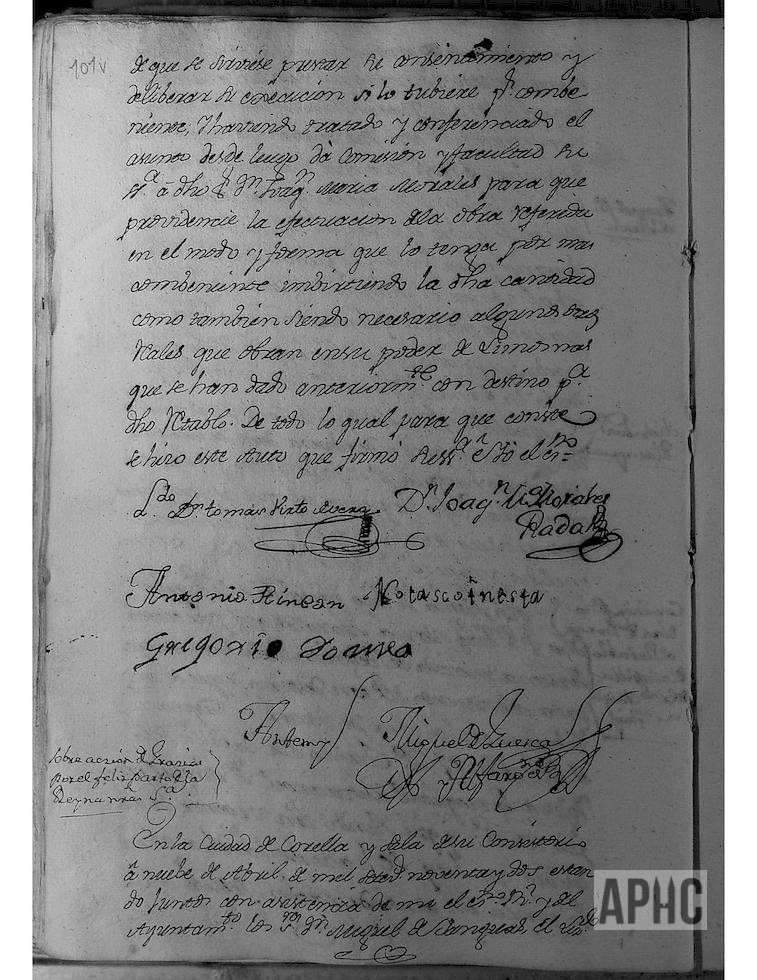 101v
de que se sirviese prestar su consentimiento y
deliberar su execucion si lo tubiere p.r combe
niente; Y haviendo tratado y conferenciado el
asunto desde luego dà Comision y facultad su
S.a â dho S.r D.n Joaq.n Maria Morales para que
providencie la efectuacion dela obra referida
en el modo y forma que lo tenga por mas
combeniente imbirtiendo la dha cantidad
como tambien siendo necesario algunos otros
reales que obran en su poder de Limosnas
que se han dado anteriorm.te con destino p.a
dho retablo. De todo lo qual para que conste
se hizo este Auto que firmó su ss.a e Yo el es.no
L.do D.n tomas Virto
D.n Joaq.n M.a Morales
Rada
Antonio Rincon
Nolasco
Gregorio
Antemy
Miguel de Luesca
y Alfaro es.no
sobre accion de Gracias
por el feliz parto de la
Reyna nra S.a
En la Ciudad de Corella y Sala de su Consistorio
â nuebe de Abril de mil setez.s noventa y dos estan
do juntos con asistencia de mi el es.no R.l y del
Ayuntam.to los S.res D.n Miguel de Sanquesa, el
APHC